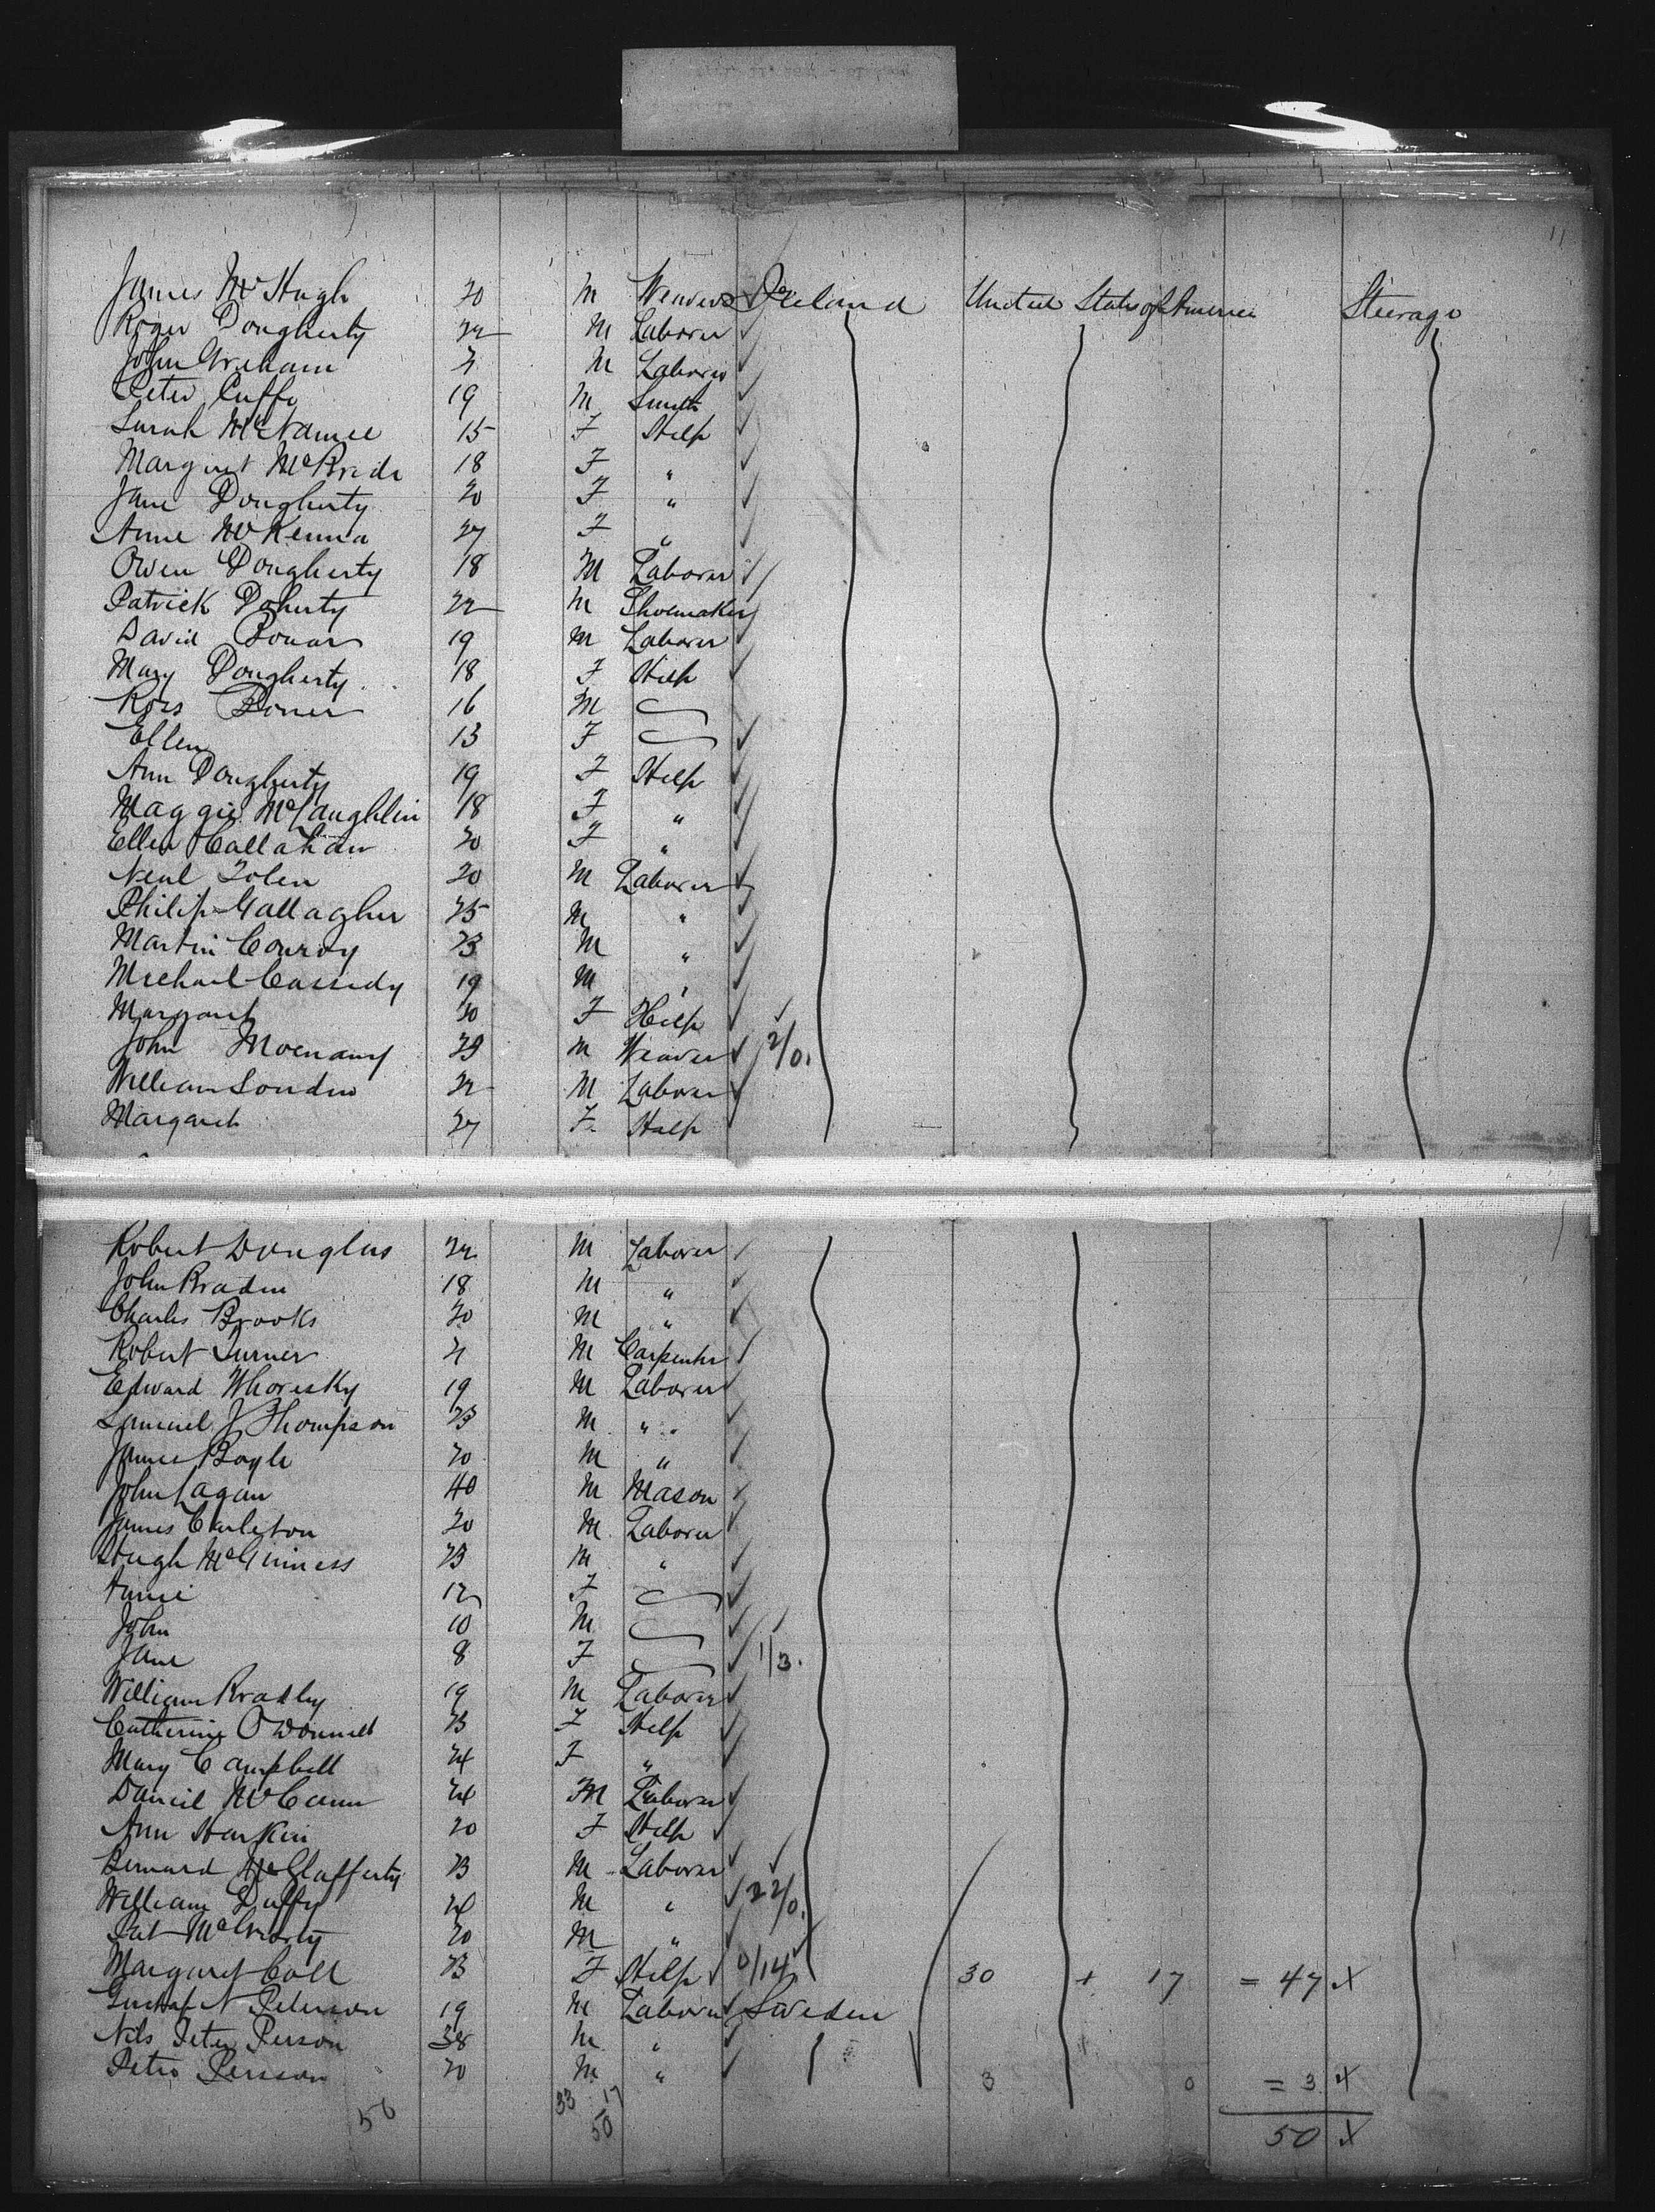 James McHugh 20 M Weaver Ireland United States of America Steerage
Roger Dougherty 22 M Laborer
John Graham 21 M Laborer
Peter Cuffe 19 M Smith
Sarah McNamee 15 F Help
Margaret McBride 18 F "
Jane Dougherty 20 F "
Anne McKenna 27 F "
Owen Dougherty 18 M Laborer
Patrick Doherty 22 M Shoemaker
David Bonar 19 M Laborer
Mary Dougherty 18 F Help
Ross Boner 16 M
Ellen 13 F
Ann Dougherty 19 F Help
Maggie McLaughlin 18 F "
Ellen Callahan 20 F "
Neal Tolen 20 M Laborer
Philip Gallagher 25 M "
Martin Conroy 23 M "
Michael Cassidy 19 M "
Margaret 20 F Help
John 29 M Weaver 2/0.
William 22 M Laborer
Margaret 27 F Help
Robert Douglas 22 M Laborer
John Braden 18 M "
Charles Brooks 20 M "
Robert Turner 21 M Carpenter
Edward Whoresky 19 M Laborer
Samuel J Thompson 23 M "
James Boyle 20 M "
John Lagan 40 M Mason
James Carleton 20 M Laborer
Hugh McGinness 23 M "
Annie 12 F
John 10 M
Jane 8 F 1/3.
William Bradley 19 M Laborer
Catherine O'Donnell 23 F Help
Mary Campbell 24 F "
Daniel McCann 24 M Laborer
Ann Harkin 20 F Help
Bernard McGlafferty 23 M Laborer
William Duffy 24 M " 2 2/0.
Pat 20 M "
Margaret Coll 23 F Help 0/14 30 + 17 = 47 X
Gustaf N Peterson 19 M Laborer Sweden
Nils Peter Person 38 M "
Petro Persson 20 M " 3 0 = 3 X
50 33 17
50 50 X